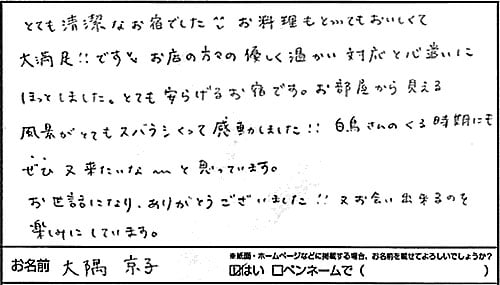 とても清潔なお宿でした お料理もとってもおいしくて
大満足!!です お店の方々の優しく温かい対応と心遣いに
ほっとしました。とても安らげるお宿です。お部屋から見える
風景がとてもスバラシくって感動しました!! 白鳥さんのくる時期にも
ぜひ又来たいな〜と思っています。
お世話になり、ありがとうございました!! 又お会い出来るのを
楽しみにしています。
※紙面・ホームページなどに掲載する場合、お名前を載せてよろしいでしょうか?
お名前 大隅 京子 ☑はい □ペンネームで( )